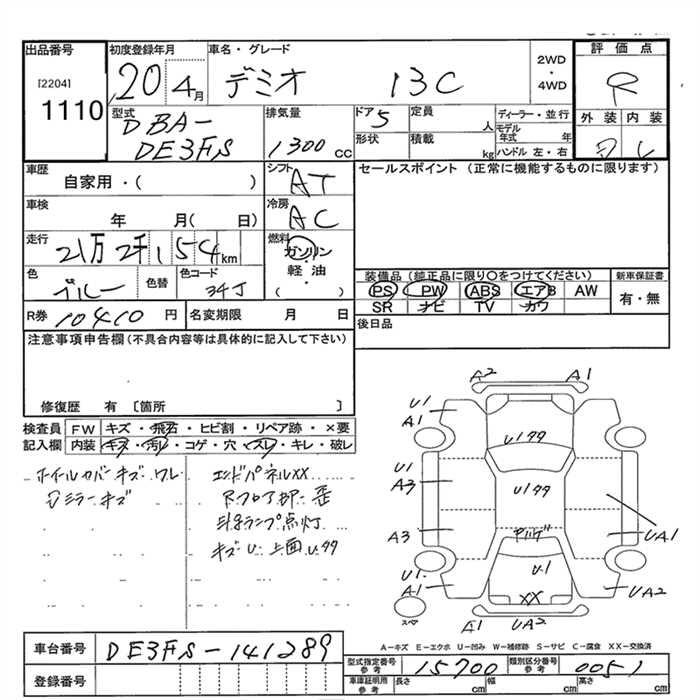 出品番号 初度登録年月 車名・グレード 評価点
[2204] 20 4月 デミオ 13C 2WD・4WD R
1110
型式 排気量 ドア 定員 ディーラー・並行 外装 内装
DBA- 5 人 モデル年式 年
DE3FS 1300cc 形状 積載 kg ハンドル 左・右
車歴 シフト セールスポイント (正常に機能するものに限ります)
自家用・( ) AT
車検 冷房
年 月( 日) AC
走行 燃料
21万2千154km ガソリン・軽油・( )
色 色替 色コード 装備品 (純正品に限り○をつけてください) 新車保証書
ブルー 34J PS PW ABS エアB AW 有・無
SR ナビ TV カワ
R券 10410円 名変期限 月 日 後日品
注意事項申告欄 (不具合内容等は具体的に記入して下さい)
修復歴 有 〔箇所 〕
検査員記入欄 FW キズ・飛石・ヒビ割・リペア跡・×要
内装 キズ・汚れ・コゲ・穴・スレ・キレ・破レ
ホイルカバーキズ・ワレ エンドパネルXX
ミラーキズ Rフロア部歪
ランプ点灯
キズU 上面
A2 A1
U1 A1
U1 A3
A3
U1 A1
A1 UA2
UA1
UA2
U1
XX
スペア
A-キズ E-エクボ U-凹み W-補修跡 S-サビ C-腐食 XX-交換済
車台番号 DE3FS-141289
登録番号
型式指定番号 参考 15700 類別区分番号 参考 0051
車庫証明用 参考 長さ cm 幅 cm 高さ cm